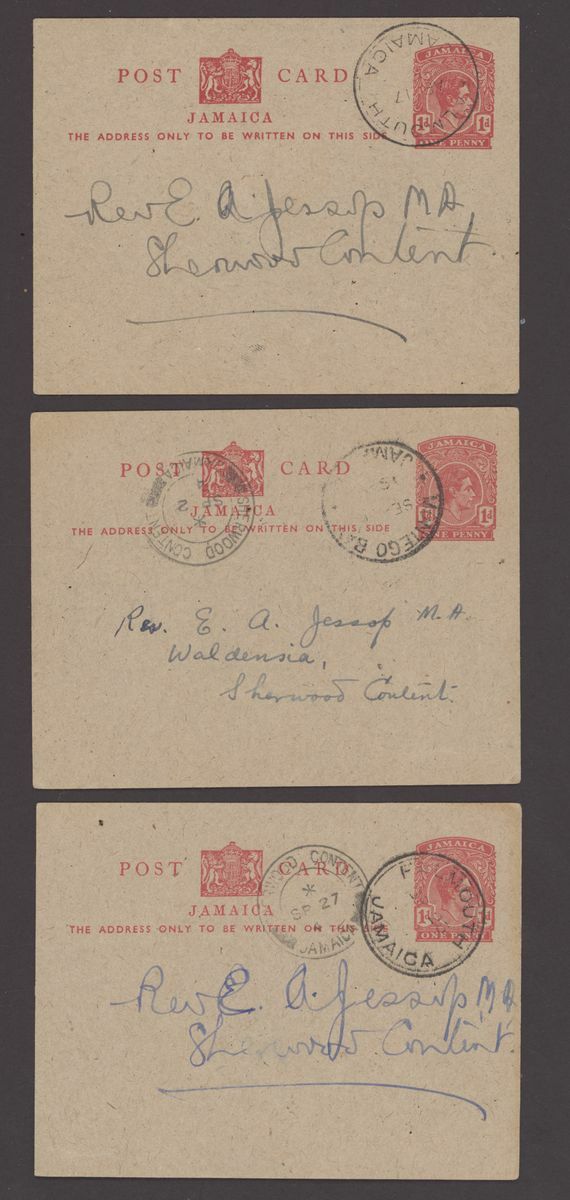 POST CARD
JAMAICA
THE ADDRESS ONLY TO BE WRITTEN ON THIS SIDE
JAMAICA
1d 1d
ONE PENNY
JAMAICA
17
Rev E. A. Jessop MA
Sherwood Content
POST CARD
JAMAICA
THE ADDRESS ONLY TO BE WRITTEN ON THIS SIDE
JAMAICA
1d
ONE PENNY
CONT
2
SE
Rev. E. A. Jessop M.A.
Waldensia,
Sherwood Content.
POST CARD
JAMAICA
THE ADDRESS ONLY TO BE WRITTEN ON THIS SIDE
JAMAICA
1d
ONE PENNY
WOOD CONTENT
SP 27
JAMAICA
MOUTH
JAMAICA
Rev E. A. Jessop, MA
Sherwood Content.